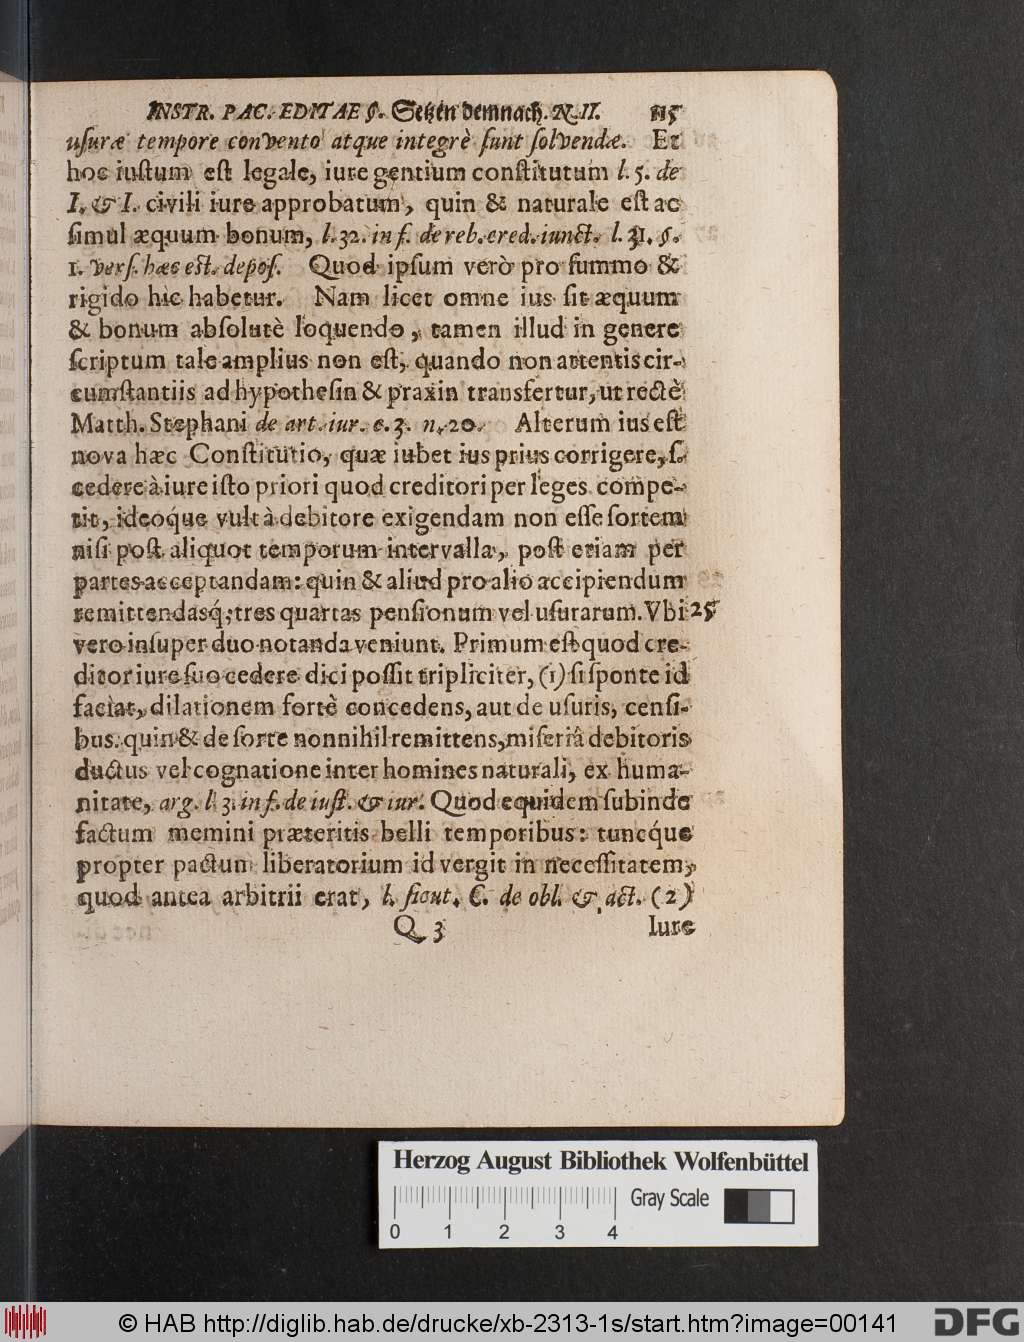 INSTR. PAC. EDITAE §. Setzen demnach. N. II. 115
uſuræ tempore convento atque integrè ſunt ſolvendæ. Et
hoc iuſtum eſt legale, iure gentium conſtitutum l. 5. de
I. & I. civili iure approbatum, quin & naturale eſt ac
ſimul æquum bonum, l. 32. in f. de reb. cred. iunct. l. 31. §.
1. verſ. hæc eſt. depoſ. Quod ipſum verò pro ſummo &
rigido hic habetur. Nam licet omne ius ſit æquum
& bonum abſolutè loquendo, tamen illud in genere
ſcriptum tale amplius non eſt, quando non attentis cir-
cumſtantiis ad hypotheſin & praxin transfertur, ut rectè
Matth. Stephani de art. iur. c. 3. n. 20. Alterum ius eſt
nova hæc Conſtitutio, quæ iubet ius prius corrigere, ſ.
cedere à iure iſto priori quod creditori per leges compe-
tit, ideoque vult à debitore exigendam non eſſe ſortem
niſi poſt aliquot temporum intervalla, poſt etiam per
partes acceptandam: quin & aliud pro alio accipiendum
remittendasq́; tres quartas penſionum vel uſurarum. Vbi 25
vero inſuper duo notanda veniunt. Primum eſt quod cre-
ditor iure ſuo cedere dici poſſit tripliciter, (1) ſi ſponte id
faciat, dilationem fortè concedens, aut de uſuris, cenſi-
bus. quin & de ſorte nonnihil remittens, miſeriâ debitoris
ductus vel cognatione inter homines naturali, ex huma-
nitate, arg. l. 3. in f. de iuſt. & iur. Quod equidem ſubinde
factum memini præteritis belli temporibus: tuncq́ue
propter pactum liberatorium id vergit in neceſſitatem,
quod antea arbitrii erat, l. ſicut. C. de obl. & act. (2)
Q 3 Iure
Herzog August Bibliothek Wolfenbüttel
Gray Scale
0 1 2 3 4
© HAB http://diglib.hab.de/drucke/xb-2313-1s/start.htm?image=00141
DFG